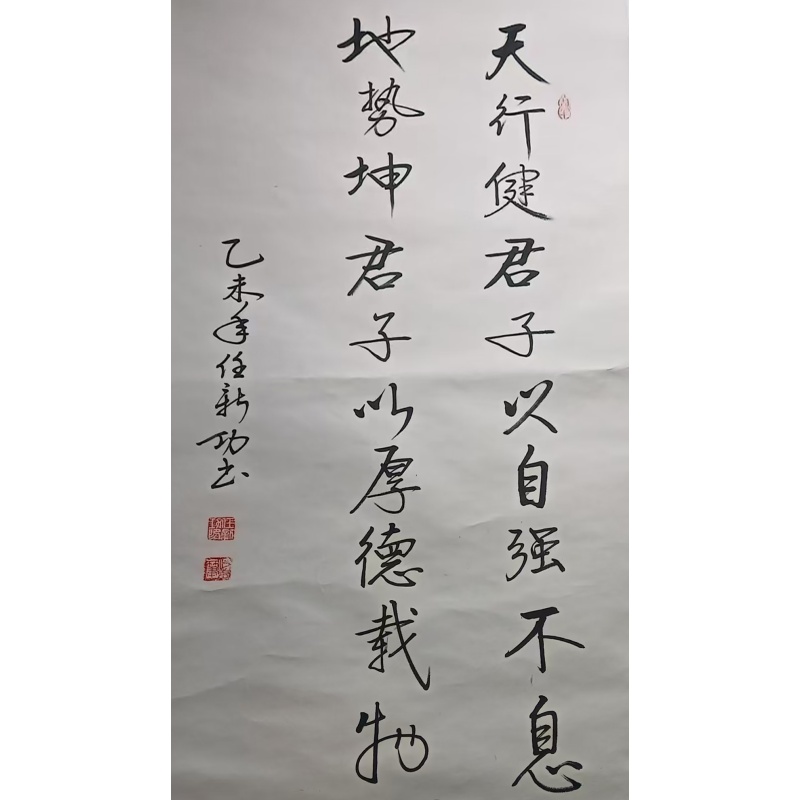 天行健君子以自强不息
地势坤君子以厚德载物
乙未年任新功书